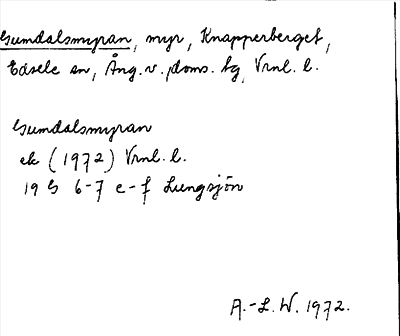 Gumdalsmyran, myr, Knapperberget,
Edsele sn, Ång. v. doms. tg, Vrnl. l.
Gumdalsmyran
ek (1972) Vrnl. l.
19 G 6-7 e-f Lungsjön
A.-L. W. 1972.